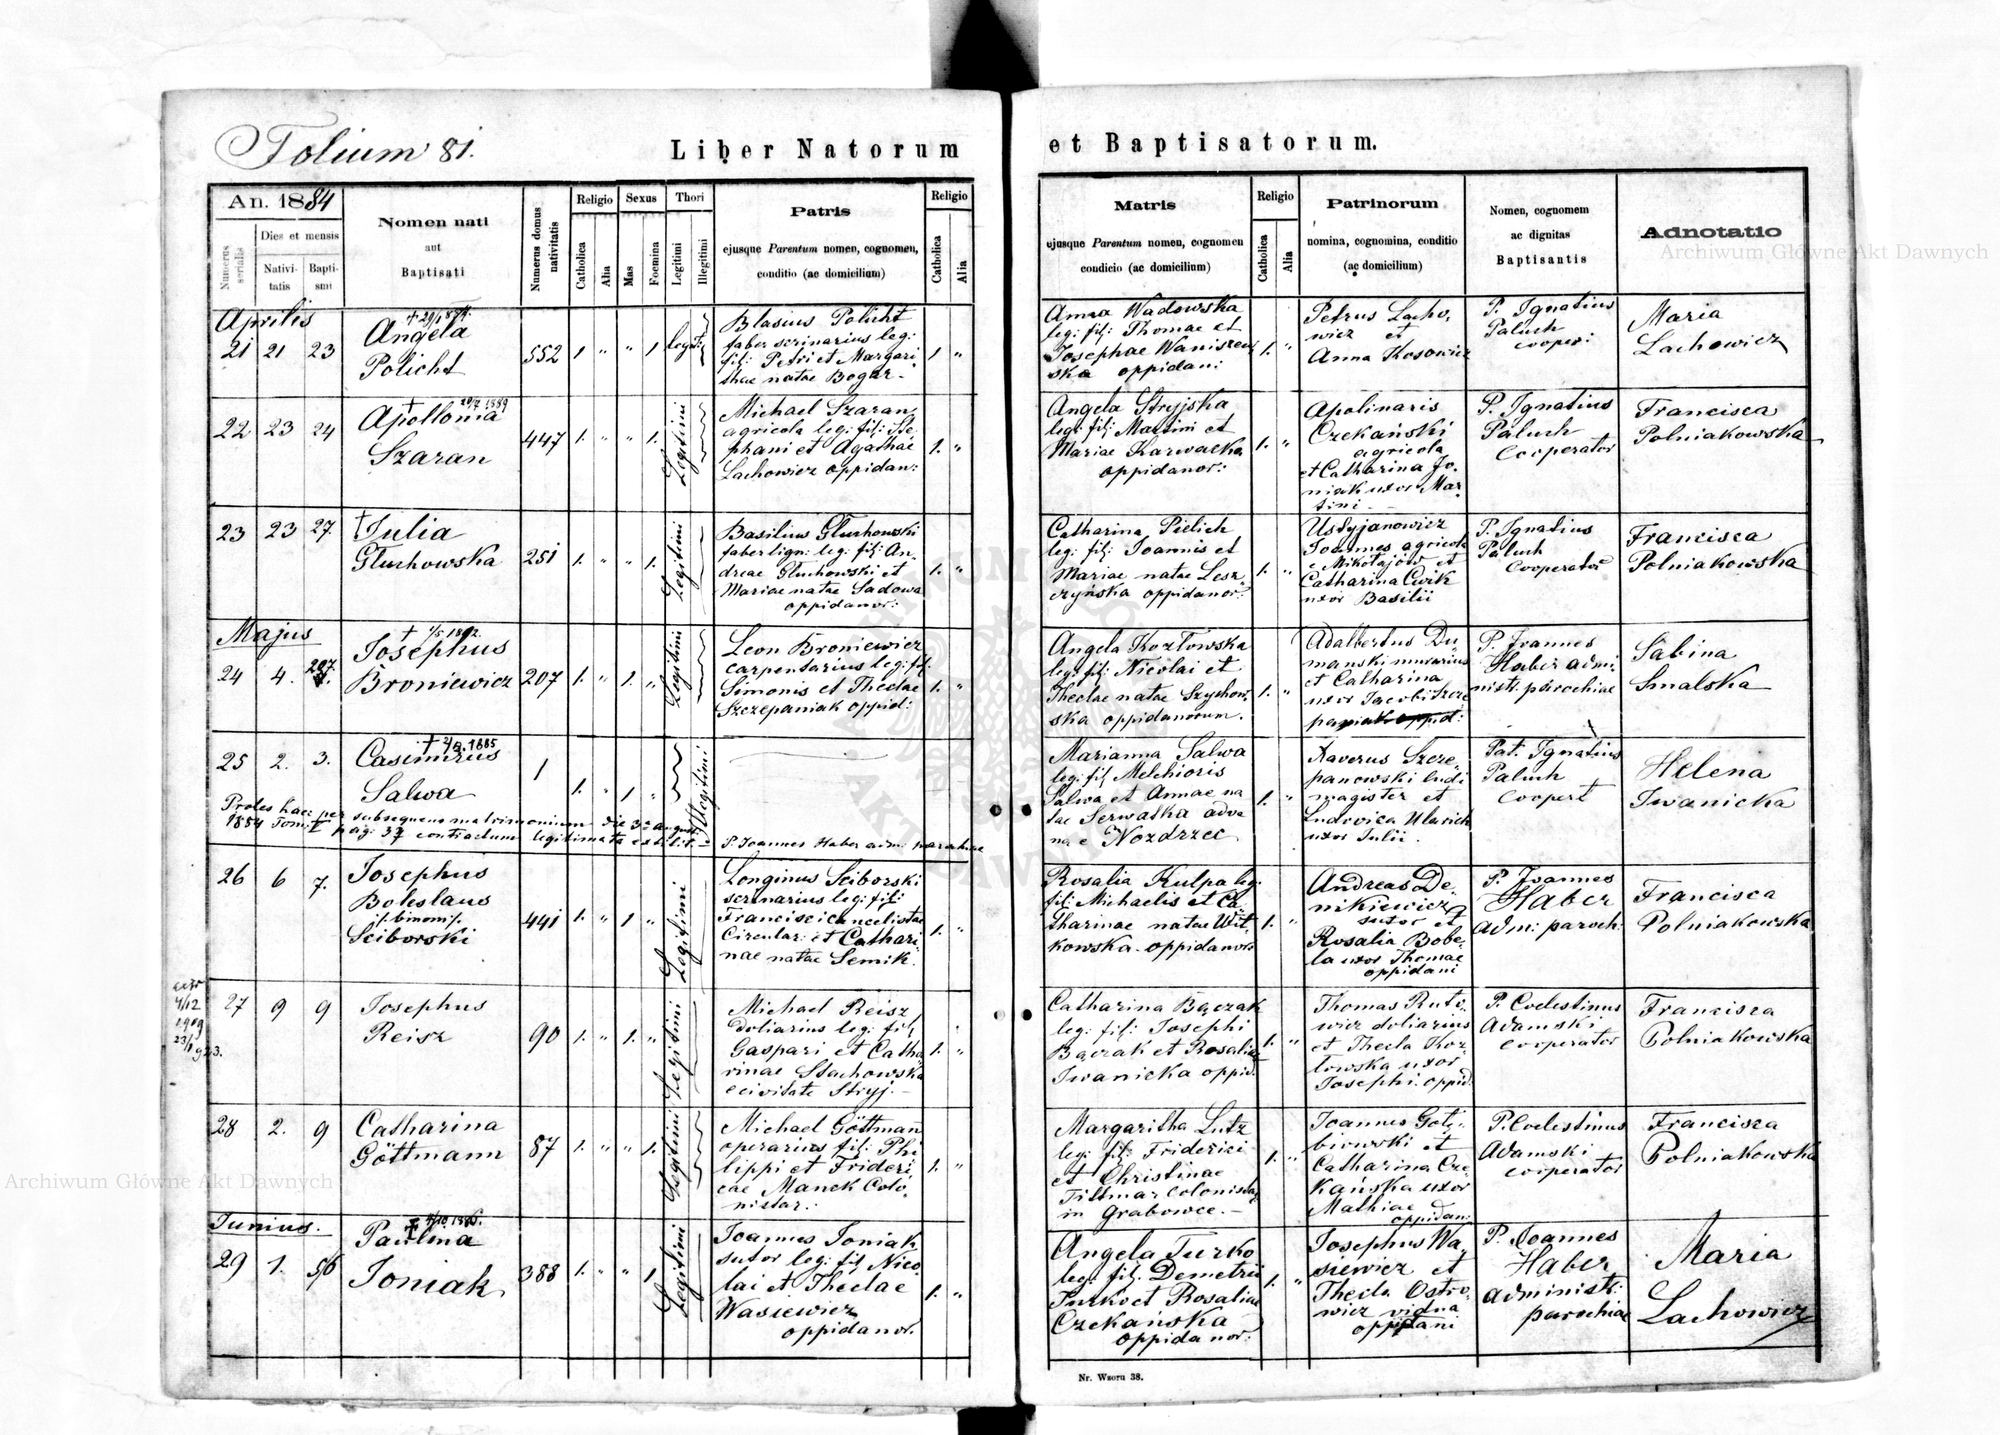 Folium 81.
Liber Natorum et Baptisatorum.
An. 1884
Numerus serialis
Dies et mensis
Nativitatis
Baptismi
Nomen nati
aut
Baptisati
Numerus domus nativitatis
Religio
Catholica
Alia
Sexus
Mas
Foemina
Thori
Legitimi
Illegitimi
Patris
ejusque Parentum nomen, cognomen,
conditio (ac domicilium)
Religio
Catholica
Alia
Matris
ejusque Parentum nomen, cognomen
condicio (ac domicilium)
Religio
Catholica
Alia
Patrinorum
nomina, cognomina, conditio
(ac domicilium)
Nomen, cognomem
ac dignitas
Baptisantis
Adnotatio
Archiwum Główne Akt Dawnych
Aprilis
21 21 23
Angela
Policht
552 1 " " 1
Blasius Policht
faber scrinarius leg:
fil: Petri et Margari
thae natae Bogar-
1 "
Anna Wadowska
leg: fil: Thomae et
Josephae Waniszew
ska oppidani
1. "
Petrus Lacho,
wicz et
Anna Kosowicz
P. Ignatius
Paluch
cooper:
Maria
Lachowicz
22 23 24
Apollonia
Szaran
447 1. " " 1.
Legitimi
Michael Szaran
agricola leg: fil: Ste
phani et Agathae
Lachowicz oppidan:
1. "
Angela Stryjska
leg: fil: Martini et
Mariae Karwacka
oppidanor:
1. "
Apolinaris
Czekański
agricola
et Catharina Jo,
niak uxor Mar-
tini -
P. Ignatius
Paluch
Cooperator
Francisca
Polniakowska
23 23 27.
† Julia
Głuchowska
251 1. " " 1.
Legitimi
Basilius Głuchowski
faber lign: leg: fil: An,
dreae Głuchowski et
Mariae natae Sadowa
oppidanor:
1. "
Catharina Pielich
leg: fil: Joannis et
Mariae natae Lesz-
czyńska oppidanor:
1. "
Ustyjanowicz
Joannes agricola
e Mikołajów et
Catharina Ćwik
uxor Basilii
P. Ignatius
Paluch
Cooperator
Francisca
Polniakowska
Majus
24 4.
† 1/5 1892.
Josephus
Broniewicz
207 1. " 1. "
Legitimi
Leon Broniewicz
carpentarius leg: fil.
Simonis et Theclae
Szczepaniak oppid:
1. "
Angela Kozłowska
leg: fil: Nicolai et
Theclae natae Szychow,
ska oppidanorum.
1. "
Adalbertus Du,
manski murarius
et Catharina
uxor Jacobi Szcze
paniak oppid:
P. Joannes
Haber admi,
nistr. parochiae
Sabina
Smalska
25 2. 3.
Casimirus
Salwa
1 1. " 1 "
Illegitimi
Proles haec per subsequens matrimonium die 3a augusti
1884 Tom: I pag: 37 contractum legitimata
P. Joannes Haber adm. parochiae
Marianna Salwa
leg: fil. Melchioris
Salwa et Annae na
tae Serwatka adve
na e Nozdrzec
1. "
Xaverus Szcze,
panowski ludi
magister et
Ludovica Ulwrich
uxor Julii
Pat. Ignatius
Paluch
coopert
Helena
Iwanicka
26 6 7.
Josephus
Boleslaus
/: binom :/
Sciborski
441 1. " 1 "
Legitimi
Longinus Sciborski
scrinarius leg: fil:
Francisci cancelistae
Circular: et Cathari,
nae natae Semik.
1. "
Rosalia Kulpa leg:
fil: Michaelis et Ca,
tharinae natae Wit
kowska oppidanor:
1. "
Andreas De,
nikiewicz
sutor et
Rosalia Bobe,
la uxor Thomae
oppidani
P. Joannes
Haber
adm: paroch:
Francisca
Polniakowska
4/12
1919
27 9 9
Josephus
Reisz
90 1. " 1. "
Legitimi
Michael Reisz
doliarius leg: fil,
Gaspari et Catha
rinae Stachowska
e civitate Stryj. -
1. "
Catharina Bączak
leg: fil: Josephi
Bączak et Rosaliae
Iwanicka oppid:
1. "
Thomas Ruto,
wicz doliarius
et Thecla Koz-
łowska uxor
Josephi. oppid.
P. Coelestinus
Adamski
cooperator
Francisca
Polniakowska
28 2. 9
Catharina
Göttmann
87 1. " " 1.
Legitimi
Michael Göttman
operarius fil: Phi
lippi et Frideri
cae Manek Colo,
nistar:
1. "
Margaritha Lutz
leg: fil: Friderici
et Christinae
Tittmar colonistar:
in Grabowce. -
1. "
Joannes Gołę,
biowski et
Catharina Cze
kańska uxor
Mathiae
oppidan:
P. Coelestinus
Adamski
cooperator
Francisca
Polniakowska
Junius.
29 1.
Paulina
Joniak
388 1. " " 1
Legitimi
Joannes Joniak
sutor leg: fil, Nico,
lai et Theclae
Wasiewicz
oppidanor.
1. "
Angela Turko
leg: fil. Demetrii
Turko et Rosaliae
Czekańska
oppidanor:
1. "
Josephus Wa,
siewicz et
Thecla Ostro,
wicz vidua
oppidani
P. Joannes
Haber
administr:
parochiae
Maria
Lachowicz
Nr. Wzoru 38.
Archiwum Główne Akt Dawnych